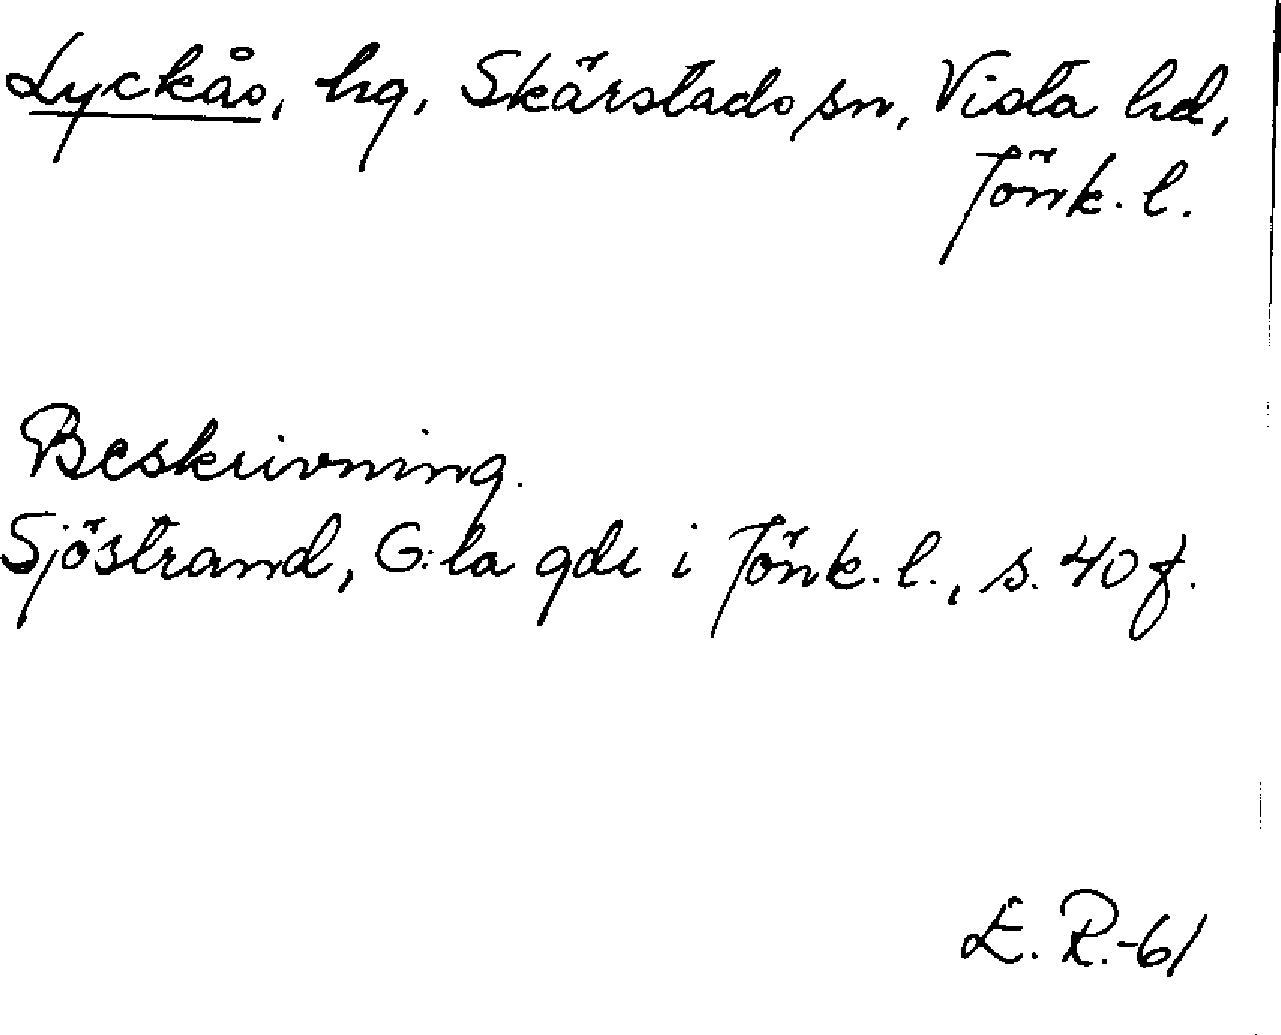 Lyckås, hg, Skärstads sn, Vista hd,
Jönk. l.
Beskrivning.
Sjöstrand, G:la gdr i Jönk. l., s. 40 f.
E. R.-61